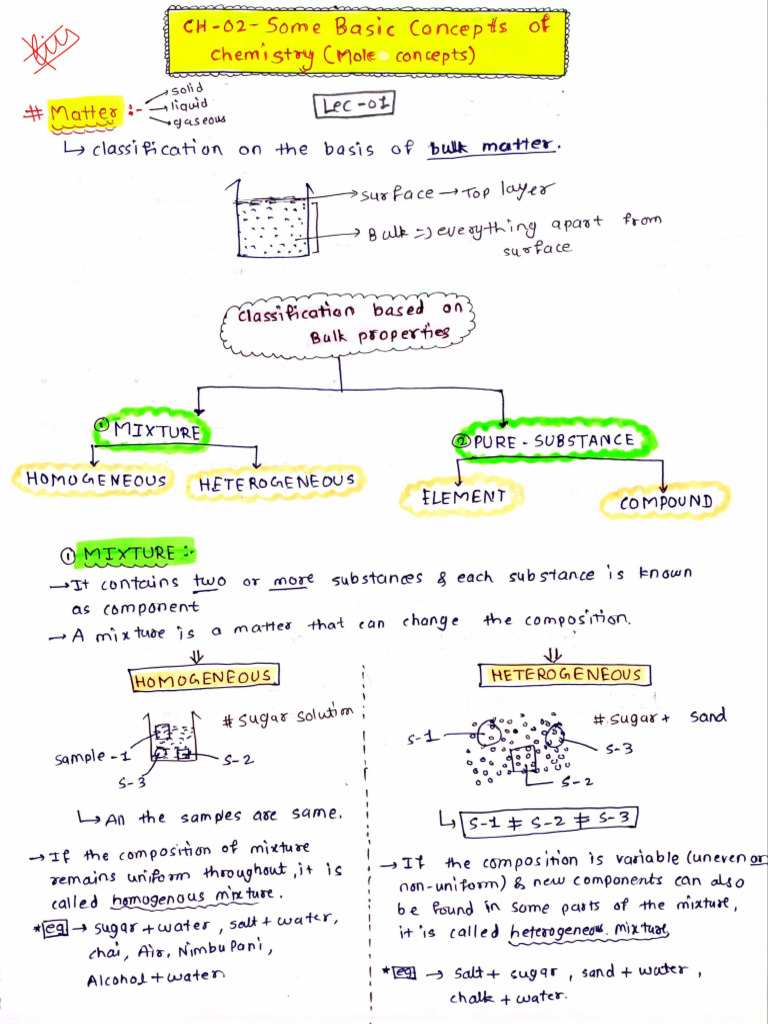 CH-02- Some Basic Concepts of
Chemistry (Mole concepts)
# Matter :-
solid
liquid
gaseous
Lec-01
↳ classification on the basis of bulk matter.
surface → Top layer
Bulk => everything apart from
surface.
Classification based on
Bulk properties
① MIXTURE
② PURE-SUBSTANCE
HOMOGENEOUS
HETEROGENEOUS
ELEMENT
COMPOUND
① MIXTURE :-
→ It contains two or more substances & each substance is known
as component
→ A mixture is a matter that can change the composition.
⇓
HOMOGENEOUS
# sugar solution
sample-1
S-2
S-3
↳ All the samples are same.
→ If the composition of mixture
remains uniform throughout, it is
called homogenous mixture.
* eg → sugar + water, salt + water,
chai, Air, Nimbu Pani,
Alcohol + water
⇓
HETEROGENEOUS
# sugar + sand
S-1
S-3
S-2
↳ S-1 ≠ S-2 ≠ S-3
→ If the composition is variable (uneven or
non-uniform) & new components can also
be found in some parts of the mixture,
it is called heterogeneous mixture,
* eg → Salt + sugar, sand + water,
chalk + water.